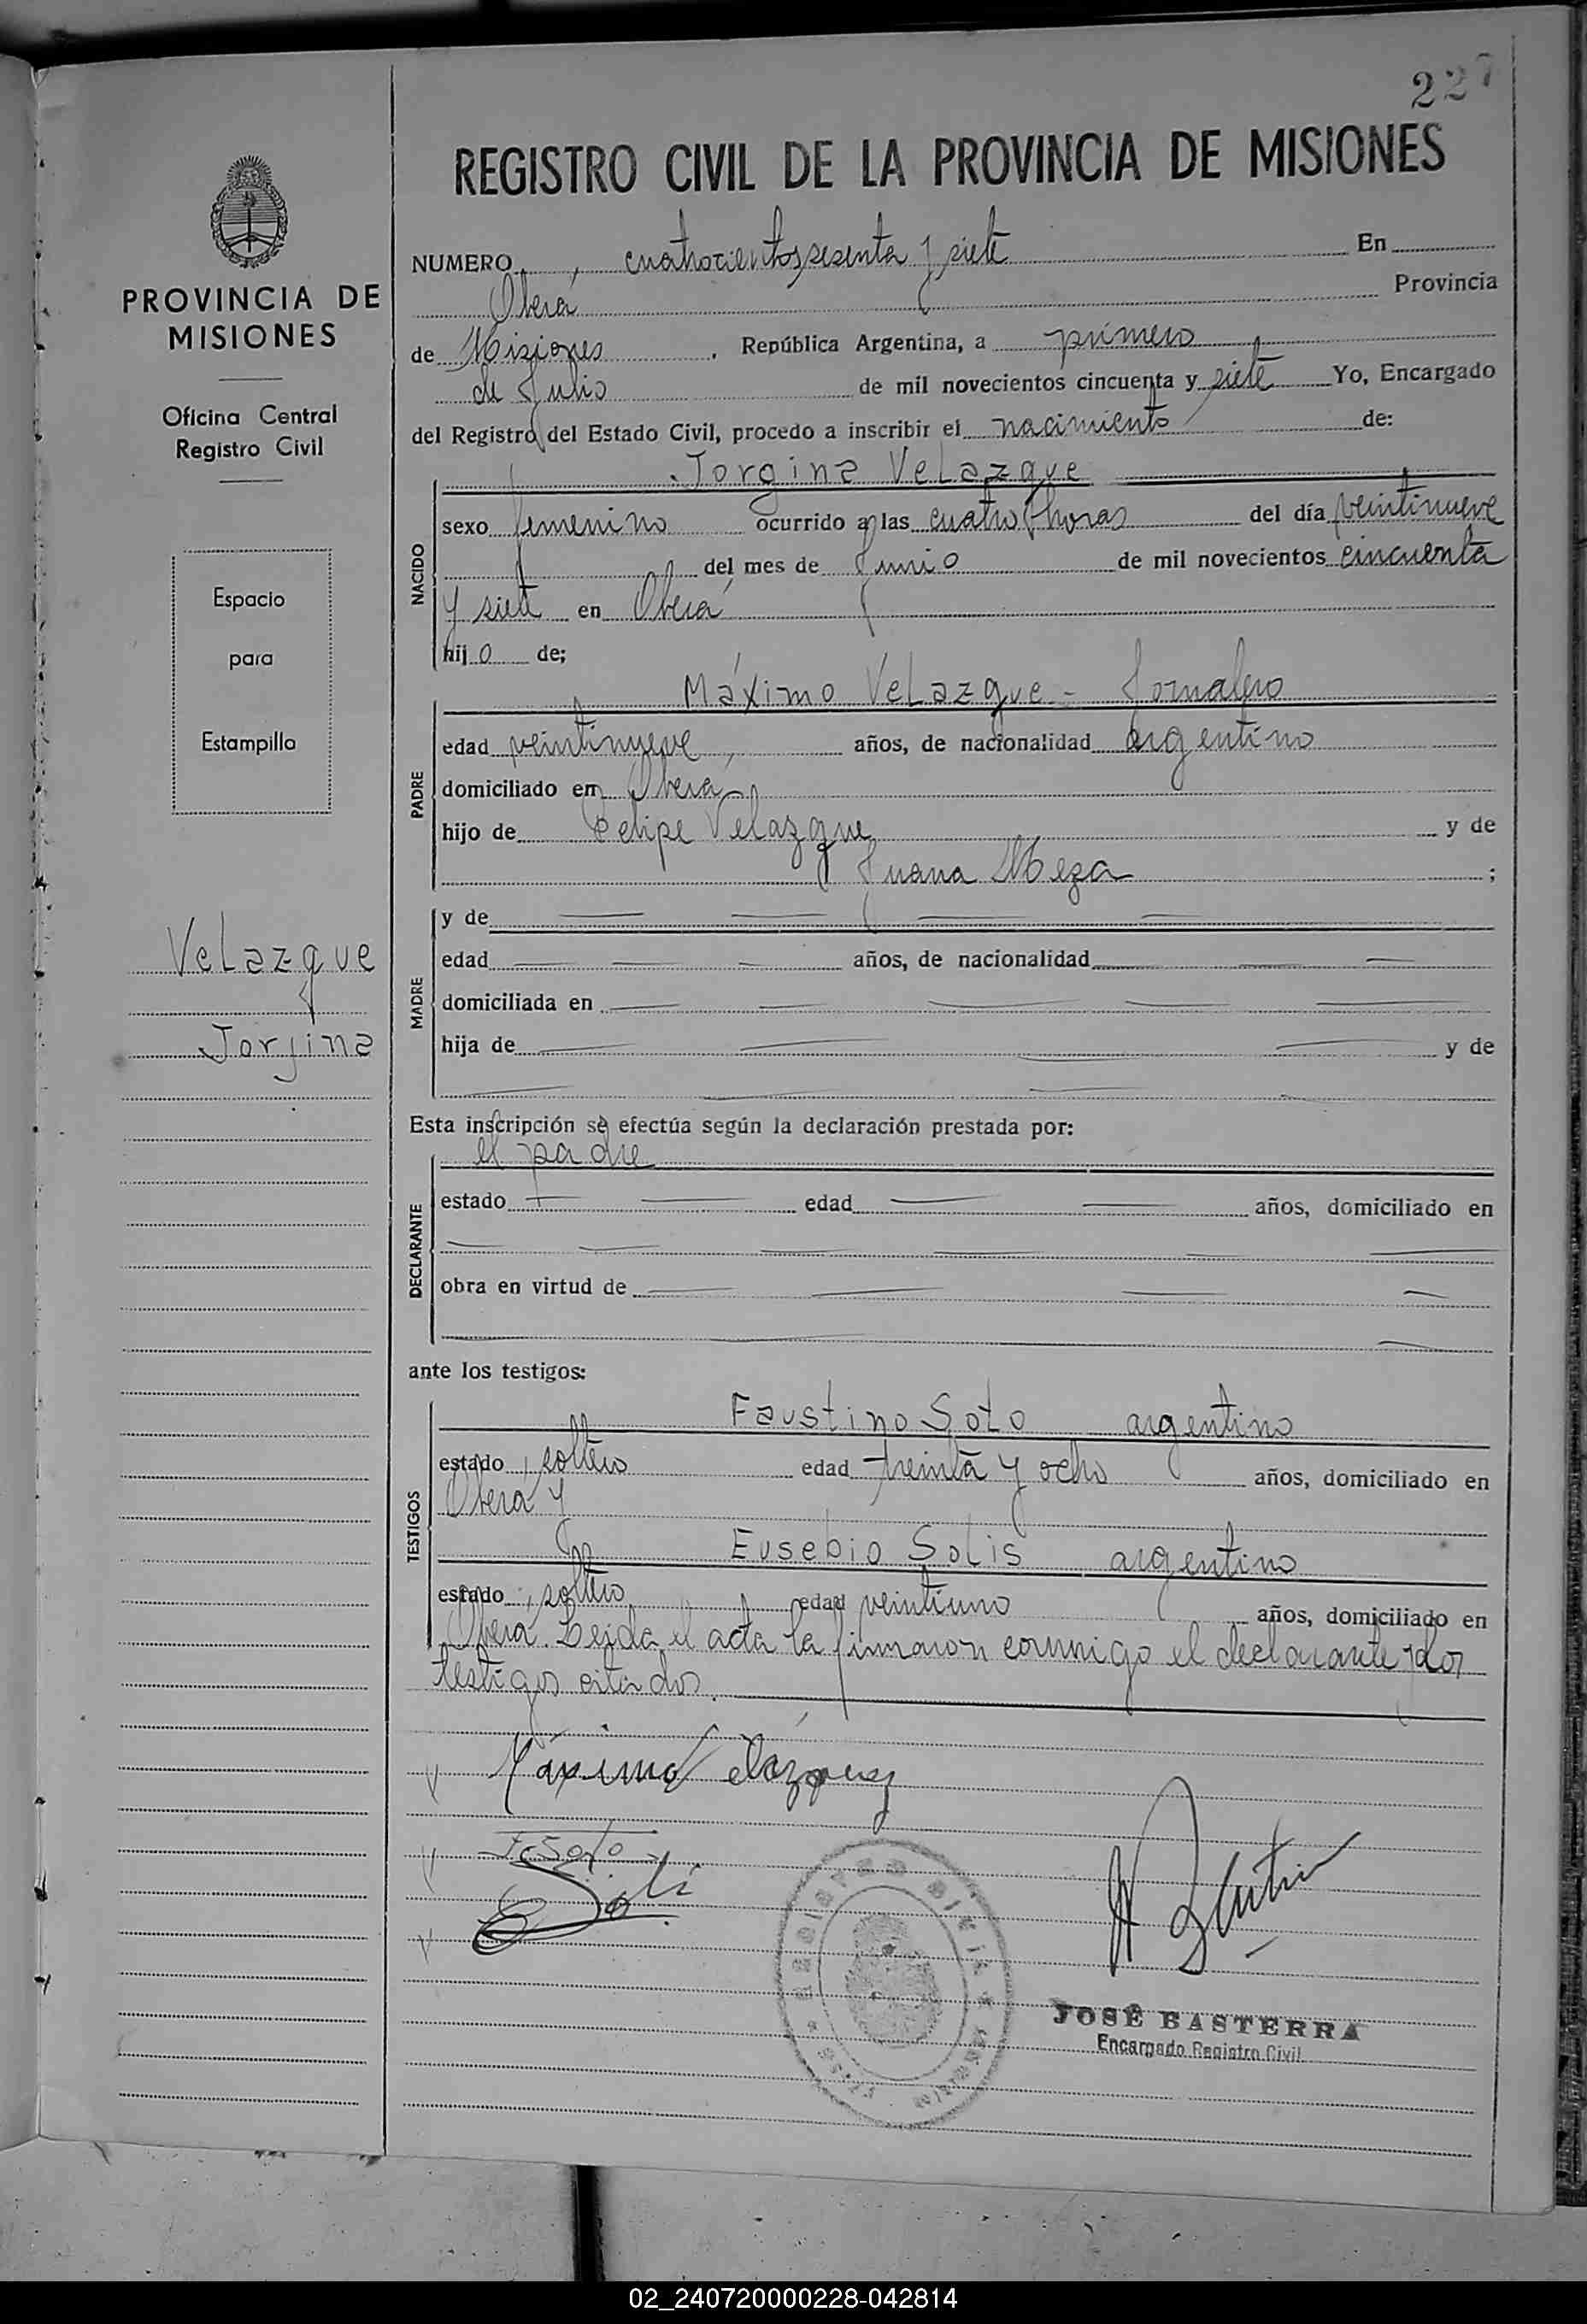 227
REGISTRO CIVIL DE LA PROVINCIA DE MISIONES
PROVINCIA DE
MISIONES
Oficina Central
Registro Civil
Espacio
para
Estampilla
Velazque
Jorjina
NUMERO cuatrocientos sesenta y siete En
Oberá Provincia
de Misiones, República Argentina, a primero
de Julio de mil novecientos cincuenta y siete Yo, Encargado
del Registro del Estado Civil, procedo a inscribir el nacimiento de:
Jorgina Velazque
NACIDO
sexo femenino ocurrido a las cuatro horas del día veintinueve
del mes de Junio de mil novecientos cincuenta
y siete en Oberá
hij o de;
Máximo Velazque - Jornalero
PADRE
edad veintinueve, años, de nacionalidad argentino
domiciliado en Oberá
hijo de Felipe Velazque y de
Juana Meza ;
MADRE
y de
edad años, de nacionalidad
domiciliada en
hija de y de
Esta inscripción se efectúa según la declaración prestada por:
el padre
DECLARANTE
estado edad años, domiciliado en
obra en virtud de
ante los testigos:
Faustino Soto argentino
TESTIGOS
estado soltero edad treinta y ocho años, domiciliado en
Oberá y
Eusebio Solis argentino
estado soltero edad veintiuno años, domiciliado en
Oberá. Leida el acta la firmaron conmigo el declarante y los
testigos citados.
Máximo Velázquez
F Soto
E Soli
REGISTRO CIVIL
JOSÉ BASTERRA
Encargado Registro Civil
02_240720000228-042814